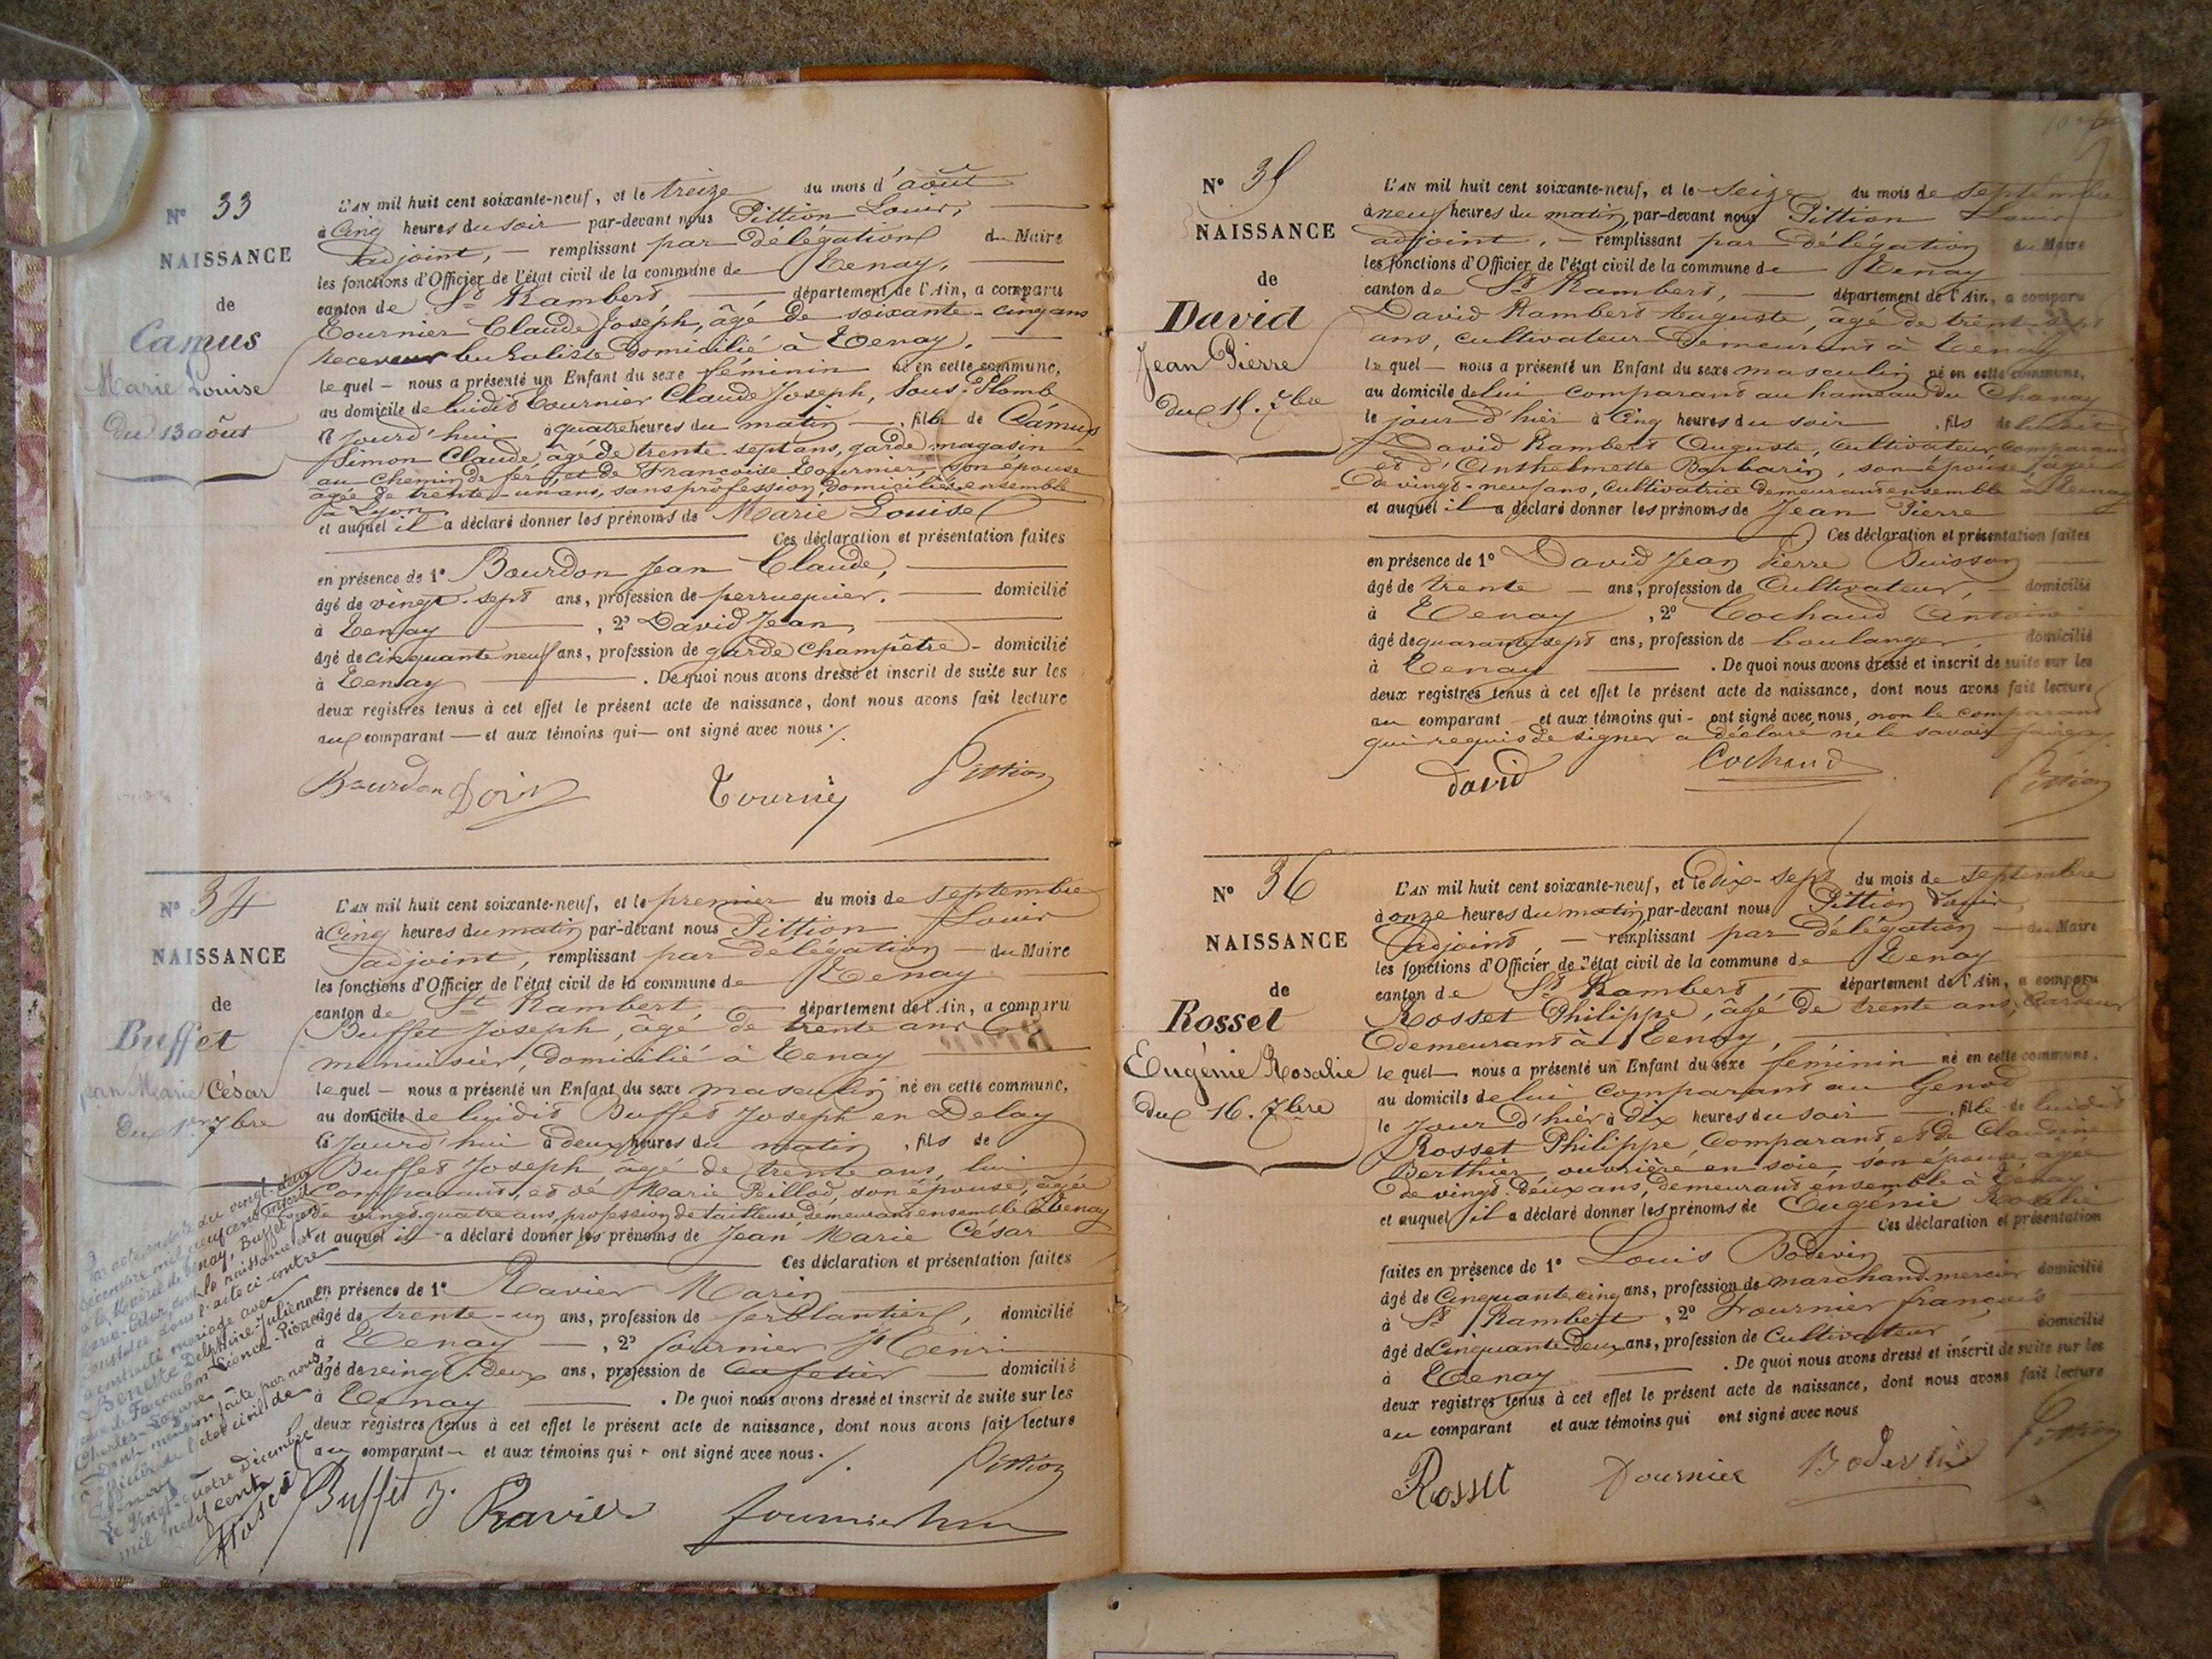 N° 33
NAISSANCE
de
Camus
Marie Louise
du 13 août
L'AN mil huit cent soixante-neuf, et le treize du mois d'août
à Cinq heures du soir par-devant nous Pittion Louis,
adjoint, remplissant par délégation du Maire
les fonctions d'Officier de l'état civil de la commune de Tenay,
canton de St Rambert, département de l'Ain, a comparu
Tournier Claude Joseph, âgé de soixante-cinq ans
receveur buraliste domicilié à Tenay.
lequel nous a présenté un Enfant du sexe féminin né en cette commune,
au domicile de ludit Tournier Claude Joseph, Sous-Plomb
jourd'hui à quatre heures du matin, fille de Camus
Simon Claude âgé de trente-sept ans, garde-magasin
au chemin de fer, et de Françoise Tournier, son épouse
âgée de trente-un ans, sans profession, domiciliés ensemble
à Lyon
et auquel il a déclaré donner les prénoms de Marie Louise
Ces déclaration et présentation faites
en présence de 1° Bourdon Jean Claude,
âgé de vingt-sept ans, profession de perruquier, domicilié
à Tenay, 2° David Jean,
âgé de cinquante neuf ans, profession de garde champêtre domicilié
à Tenay. De quoi nous avons dressé et inscrit de suite sur les
deux registres tenus à cet effet le présent acte de naissance, dont nous avons fait lecture
au comparant et aux témoins qui ont signé avec nous
Bourdon Tournié Pittion
N° 34
NAISSANCE
de
Buffet
Jean Marie César
du 1er 7bre
L'AN mil huit cent soixante-neuf, et le premier du mois de septembre
à Cinq heures du matin par-devant nous Pittion Louis
adjoint, remplissant par délégation du Maire
les fonctions d'Officier de l'état civil de la commune de Tenay
canton de St Rambert, département de l'Ain, a comparu
Buffet Joseph, âgé de trente ans
menuisier, domicilié à Tenay
lequel nous a présenté un Enfant du sexe masculin né en cette commune,
au domicile de luidit Buffet Joseph en Delay
Ce jourd'hui à deux heures du matin, fils de
Buffet Joseph âgé de trente ans, lui
comparant, et de Marie Peillod, son épouse, âgée
de vingt-quatre ans, profession de tailleuse, demeurant ensemble à Tenay
et auquel il a déclaré donner les prénoms de Jean Marie César
Ces déclaration et présentation faites
en présence de 1° Ravier Marin
âgé de trente-un ans, profession de ferblantier, domicilié
à Tenay, 2° fournier Henri
âgé de vingt-deux ans, profession de Cafetier domicilié
à Tenay. De quoi nous avons dressé et inscrit de suite sur les
deux registres tenus à cet effet le présent acte de naissance, dont nous avons fait lecture
au comparant et aux témoins qui ont signé avec nous.
Buffet J. Ravier fournier Pittion
Par acte en date du vingt-deux
décembre mil neuf cent inscrit
à la Mairie de Tenay, Buffet Jean
Marie-César, dont la naissance est
constatée dans l'acte ci-contre
a contracté mariage avec
Delphine-Julienne
Dont mention faite par nous
Officier de l'état civil de
Tenay
Le vingt-quatre décembre
mil neuf cent
N° 35
NAISSANCE
de
David
Jean Pierre
du 15. 7bre
L'AN mil huit cent soixante-neuf, et le seize du mois de septembre
à neuf heures du matin, par-devant nous Pittion Louis
adjoint, remplissant par délégation du Maire
les fonctions d'Officier de l'état civil de la commune de Tenay
canton de St Rambert, département de l'Ain, a comparu
David Rambert Auguste, âgé de trente-sept
ans, cultivateur demeurant à Tenay
lequel nous a présenté un Enfant du sexe masculin né en cette commune,
au domicile de lui comparant au hameau du Chanay
le jour d'hier à Cinq heures du soir, fils de ludit
David Rambert Auguste, cultivateur, comparant
et d'Anthelmette Barbarin, son épouse, âgée
de vingt-neuf ans, cultivatrice demeurant ensemble à Tenay
et auquel il a déclaré donner les prénoms de Jean Pierre
Ces déclaration et présentation faites
en présence de 1° David Jean Pierre Buisson
âgé de trente ans, profession de Cultivateur, domicilié
à Tenay, 2° Cochaud Antoine
âgé de quarante sept ans, profession de boulanger, domicilié
à Tenay. De quoi nous avons dressé et inscrit de suite sur les
deux registres tenus à cet effet le présent acte de naissance, dont nous avons fait lecture
au comparant et aux témoins qui ont signé avec nous, non le comparant
qui requis de signer a déclaré ne le savoir faire
David Cochaud Pittion
N° 36
NAISSANCE
de
Rosset
Eugénie Rosalie
du 16. 7bre
L'AN mil huit cent soixante-neuf, et le dix-sept du mois de septembre
à onze heures du matin, par-devant nous Pittion Louis,
adjoint, remplissant par délégation du Maire
les fonctions d'Officier de l'état civil de la commune de Tenay
canton de St Rambert, département de l'Ain, a comparu
Rosset Philippe, âgé de trente ans, cardeur
demeurant à Tenay,
lequel nous a présenté un Enfant du sexe féminin né en cette commune,
au domicile de lui comparant au Genod
le jour d'hier à dix heures du soir, fille de luidit
Rosset Philippe, comparant, et de Claudine
Berthier, ouvrière en soie, son épouse, âgée
de vingt-deux ans, demeurant ensemble à Tenay
et auquel il a déclaré donner les prénoms de Eugénie Rosalie
Ces déclaration et présentation
faites en présence de 1° Louis Bodevin
âgé de Cinquante cinq ans, profession de marchand mercier domicilié
à St Rambert, 2° Fournier françois
âgé de Cinquante deux ans, profession de Cultivateur domicilié
à Tenay. De quoi nous avons dressé et inscrit de suite sur les
deux registres tenus à cet effet le présent acte de naissance, dont nous avons fait lecture
au comparant et aux témoins qui ont signé avec nous
Rosset Fournier Bodevin Pittion